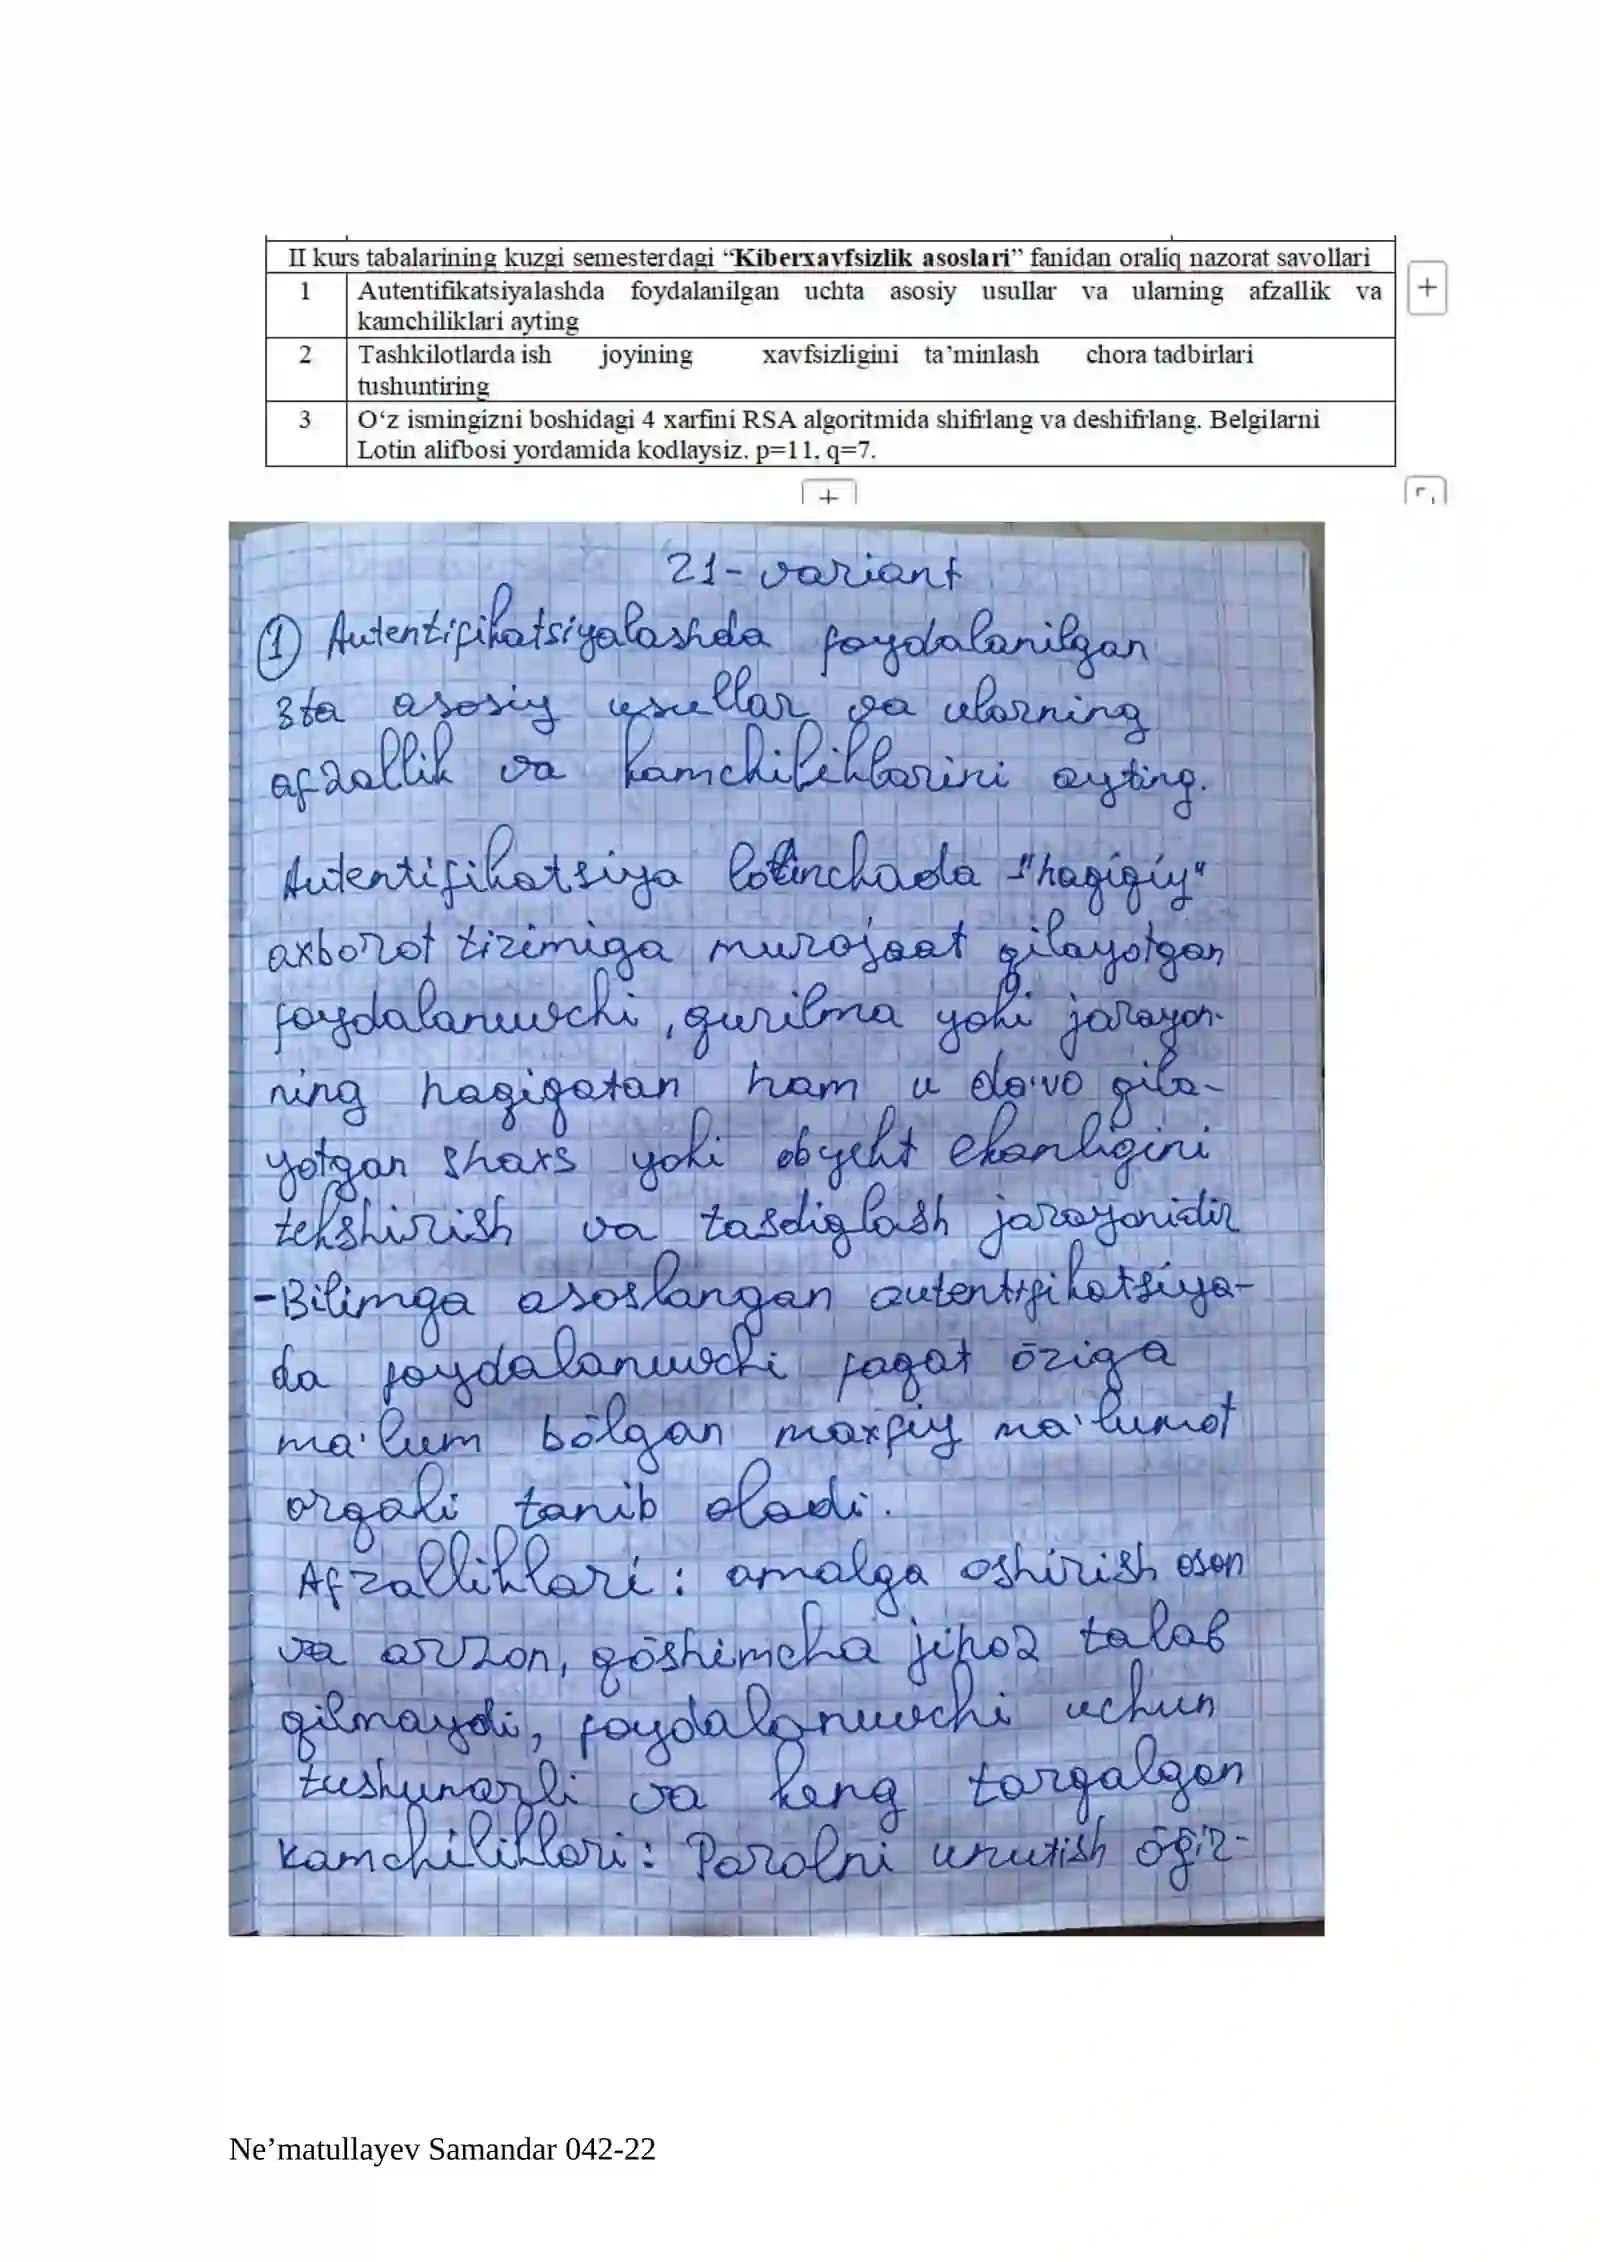 II kurs tabalarining kuzgi semesterdagi “Kiberxavfsizlik asoslari” fanidan oraliq nazorat savollari
1 Autentifikatsiyalashda foydalanilgan uchta asosiy usullar va ularning afzallik va
kamchiliklari ayting
2 Tashkilotlarda ish joyining xavfsizligini ta’minlash chora tadbirlari
tushuntiring
3 O‘z ismingizni boshidagi 4 xarfini RSA algoritmida shifrlang va deshifrlang. Belgilarni
Lotin alifbosi yordamida kodlaysiz. p=11, q=7.
21-variant
1 Autentifikatsiyalashda foydalanilgan
3ta asosiy usullar va ularning
afzallik va kamchiliklarini ayting.
Autentifikatsiya lotinchada "haqiqiy"
axborot tizimiga murojaat qilayotgan
foydalanuvchi, qurilma yoki jarayon-
ning haqiqatan ham u da'vo qila-
yotgan shaxs yoki obyekt ekanligini
tekshirish va tasdiqlash jarayonidir
-Bilimga asoslangan autentifikatsiya-
da foydalanuvchi faqat ōziga
ma'lum bōlgan maxfiy ma'lumot
orqali tanib oladi.
Afzalliklari: amalga oshirish oson
va arzon, qōshimcha jihoz talab
qilmaydi, foydalanuvchi uchun
tushunarli va keng tarqalgan
kamchiliklari: Parolni unutish ōg'ir-
Ne’matullayev Samandar 042-22